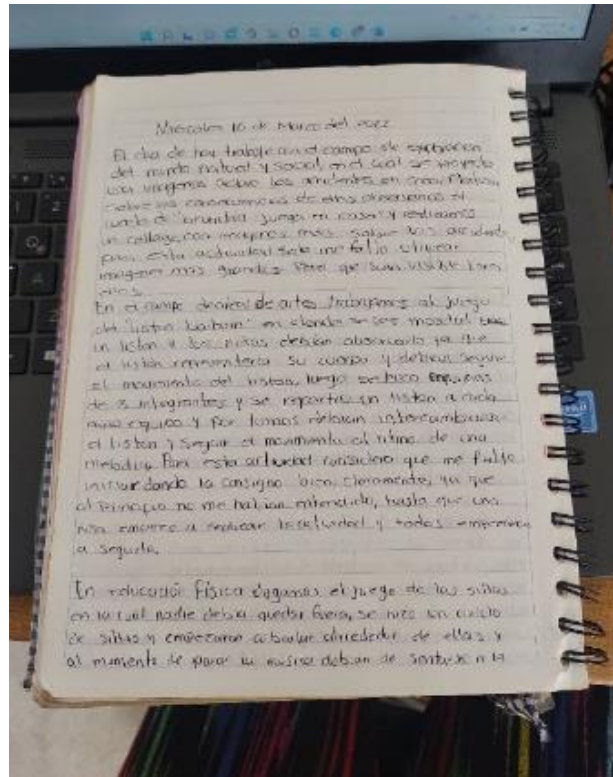 Miércoles 16 de Marzo del 2022
El día de hoy trabaje con el campo de exploración
del mundo natural y social en el cual se proyecto
una imágenes sobre los accidentes en
sobre las consecuencias de ellos observamos el
juega en casa" y realizamos
un collage con imágenes más sobre los accidentes
para esta actividad solo me falto utilizar
imagenes más grandes para que sean visible para
ellos.
En el campo de artes trabajamos el juego
del "liston" en donde se les mostro
un liston y los niños debían observarlo ya que
el liston representaría su cuerpo y debían seguir
el movimiento del liston, luego se hizo equipos
de 3 integrantes y se repartio un liston a cada
equipo y por turnos debían intercambiar
el liston y seguir el movimiento al ritmo de una
melodía. Para esta actividad considero que me falto
iniciar dando la consigna bien claramente, ya que
al principio no me habían entendido, hasta que una
niña empezo a realizar la actividad y todos empezaron
a seguirla.
En educación Física el juego de las sillas
en la cual nadie debía quedar fuera, se hizo un circulo
de sillas y empezaron a bailar alrededor de ellas y
al momento de parar la musica debían de sentarse n la